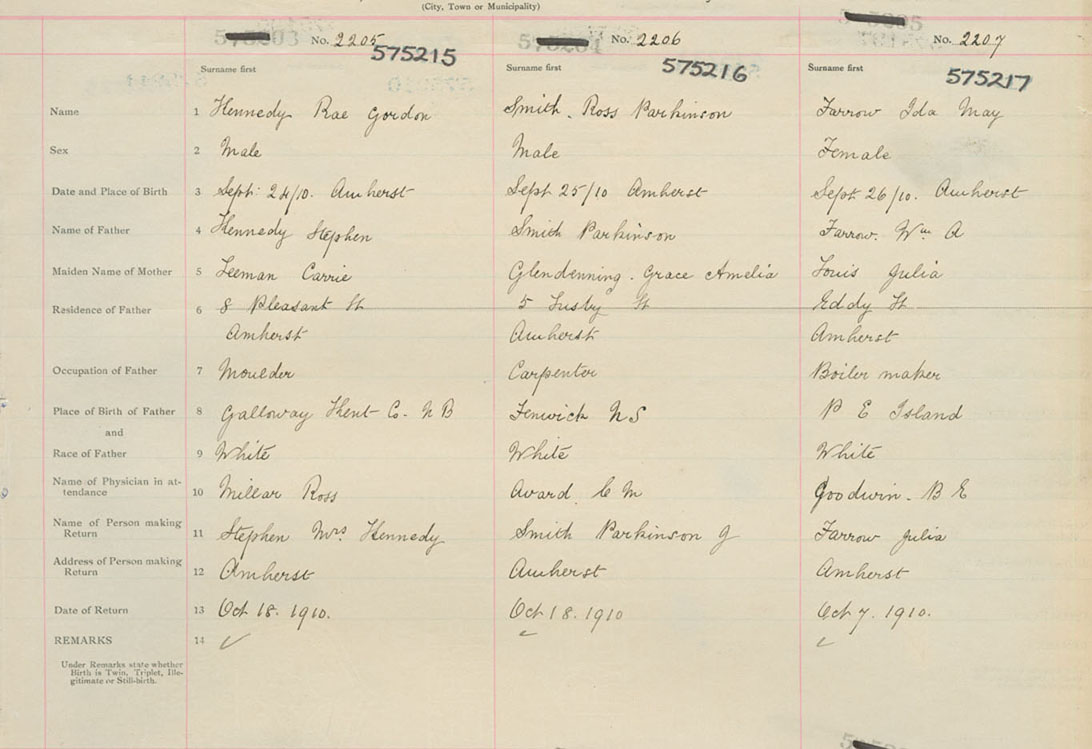 (City, Town or Municipality)
No. 2205 No. 2206 No. 2207
575215 575216 575217
Surname first Surname first Surname first
Name 1 Kennedy Rae Gordon Smith. Ross Parkinson Farrow Ida May
Sex 2 Male Male Female
Date and Place of Birth 3 Sept. 24/10. Amherst Sept 25/10 Amherst Sept 26/10. Amherst
Name of Father 4 Kennedy Stephen Smith Parkinson Farrow. Wm A
Maiden Name of Mother 5 Leeman Carrie Glendenning. Grace Amelia Louis Julia
Residence of Father 6 8 Pleasant St 5 Lusby St Eddy St
Amherst Amherst Amherst
Occupation of Father 7 Moulder Carpenter Boiler maker
Place of Birth of Father 8 Galloway Kent Co. N B Fenwick N S P E Island
and
Race of Father 9 White White White
Name of Physician in at-
tendance 10 Millar Ross Avard C M Goodwin. B E
Name of Person making
Return 11 Stephen Mrs. Kennedy Smith Parkinson G Farrow Julia
Address of Person making
Return 12 Amherst Amherst Amherst
Date of Return 13 Oct 18. 1910. Oct 18. 1910 Oct 7. 1910.
REMARKS 14
Under Remarks state whether
Birth is Twin, Triplet, Ille-
gitimate or Still-birth.